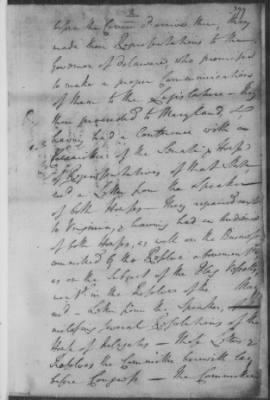 3
before the Committee they
made their Representations to the
Governor of Delaware, who promised
to make a proper Communication
of them to the Legislature — they
then proceeded to Maryland, &
having had a Conference with a
Committee of the Senate & House
of Representatives of that State
and a Letter from the Speaker
of both Houses — They repaired next
to Virginia & having had an Audience
of both Houses, as well on the Business
committed by the
as on the Subject of the Flag Vessels,
in the Resolves of the May
and a Letter from the Speaker,
inclosing several Resolutions of the
House of Delegates — These Letters &
Resolves the Committee herewith lay
before Congress — The Committee